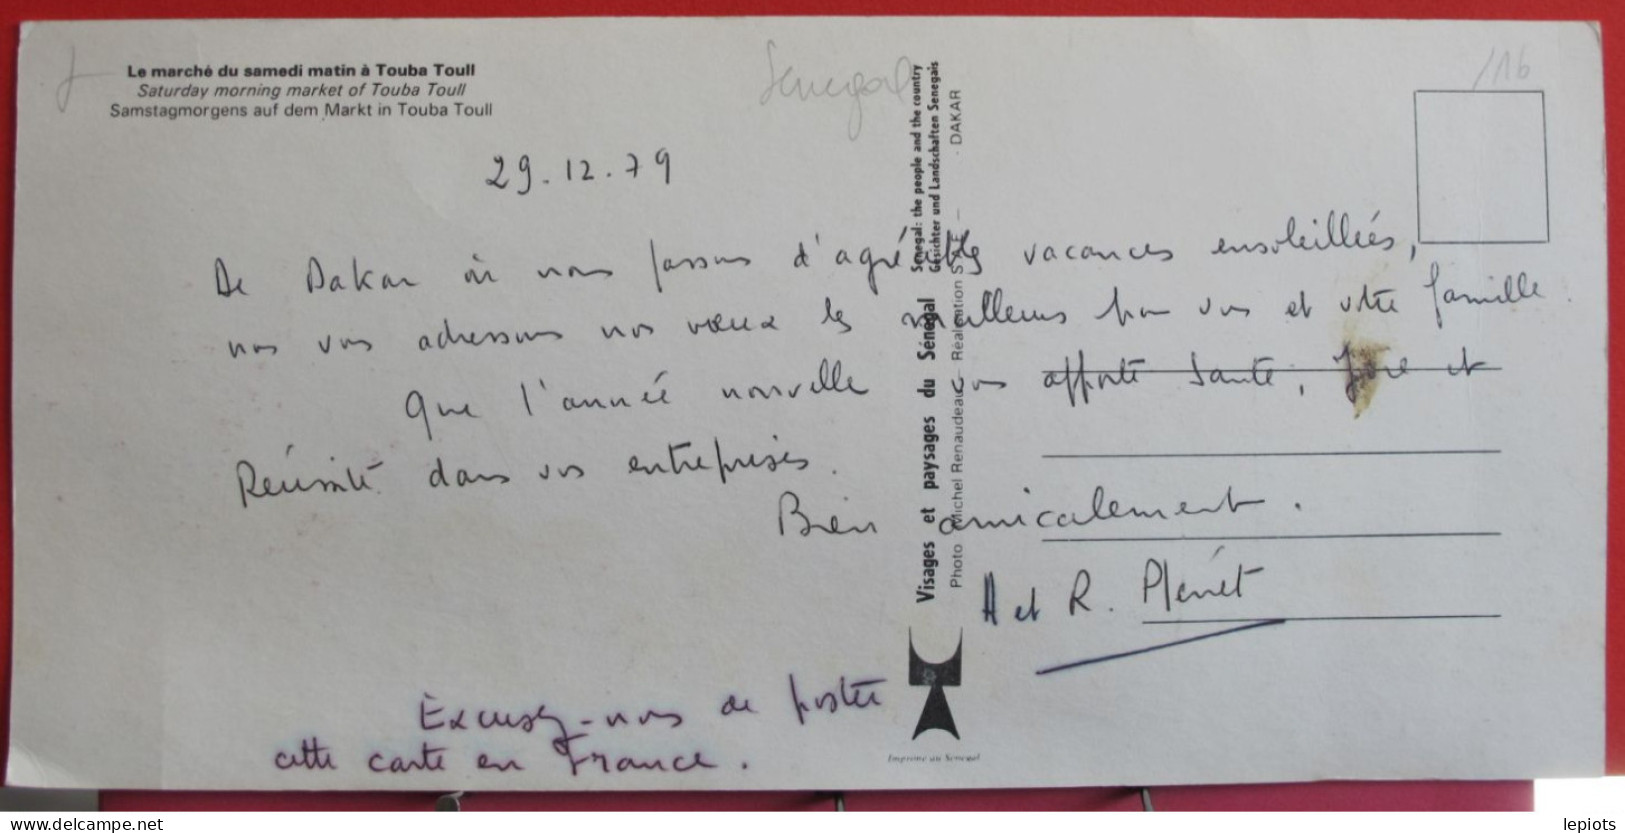 Le marché du samedi matin à Touba Toull
Saturday morning market of Touba Toull
Samstagmorgens auf dem Markt in Touba Toull
Senegal
/16
29.12.79
De Dakar où nous passons d'agréables vacances ensoleillées,
nous vous adressons nos vœux les meilleurs pour vous et votre famille.
Que l'année nouvelle vous apporte Santé, Joie et
Réussite dans vos entreprises.
Bien amicalement.
A et R. Plénet
Excusez-nous de poster
cette carte en France.
Visages et paysages du Sénégal
Senegal: the people and the country
Gesichter und Landschaften Senegals
Photo Michel Renaudeau - Réalisation - DAKAR
Imprimé au Sénégal
delcampe.net
lepiots